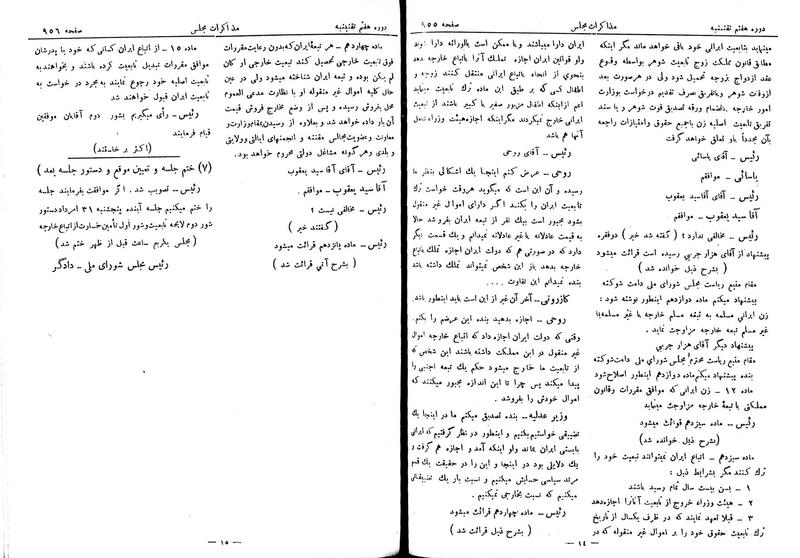 دوره هفتم تقنینیه
مذاکرات مجلس
صفحه ۹۵۵
مینهاید بتابعیت ایرانی خود باقی خواهد ماند مگر اینکه
مطابق قانون مملکت زوج تابعیت شوهر بواسطه وقوع
عقد ازدواج زوجه تحمیل شود ولی در هرصورت بعد
ازوفات شوهر ویاتفریق بصرف تقدیم درخواست بوزارت
امور خارجه بانضمام ورقه تصدیق فوت شوهر و یا سند
تفریق تابعیت اصلیه زن باجمیع حقوق وامتیازات راجعه
بآن مجدداً باو تعلق خواهد گرفت
رئیس – آقای یاسائی
یاسائی – موافقم
رئیس – آقای آقاسید یعقوب
آقا سید یعقوب – موافقم
رئیس – مخالفی ندارد ؟ ( گفته شد خیر ) دوفقره
پیشنهاد از آقای هزار جریبی رسیده است قرائت میشود
( بشرح ذیل خوانده شد )
مقام منیع ریاست مجلس شورای ملی دامت شوکته
پیشنهاد میکنم ماده دوازدهم اینطور نوشته شود :
زن ایرانی مسلمه به تبعه مسلم خارجه یا غیر مسلمه با
غیر مسلم تبعه خارجه مزاوجت نماید .
پیشنهاد دیگر آقای هزار جریبی
مقام منیع ریاست محترم مجلس شورای ملی دامت شوکته
بنده پیشنهاد میکنم ماده دوازدهم اینطور اصلاح شود
ماده ۱۲ – زن ایرانی که موافق مقررات وقانون
مملکتی با تبعه خارجه مزاوجت مینماید
رئیس – ماده سیزدهم قرائت میشود
(بشرح ذیل خوانده شد)
ماده سیزدهم – اتباع ایران نمیتوانند تبعیت خود را
ترک کنند مگر بشرایط ذیل :
۱ – بسن بیست سال تمام رسیده باشند
۲ – هیئت وزراء خروج از تابعیت آنانرا اجازه دهد
۳ – قبلا تعهد نمایند که در ظرف یکسال از تاریخ
ترک تابعیت حقوق خود را بر اموال غیر منقوله که در
ایران دارا میباشند و یا ممکن است بالوراثه دارا شوند
ولو قوانین ایران اجازه تملک آنرا باتباع خارجه بدهد
بنحوی از انحاء باتباع ایرانی منتقل کنند زوجه و
اطفال کسی که بر طبق این ماده ترک تابعیت مینماید
اعم ازاینکه اطفال مزبور صغیر یا کبیر باشند از تبعیت
ایرانی خارج نمیگردند مگراینکه اجازه هیئت وزراء شامل
آنها هم باشد
رئیس – آقای روحی
روحی – عرض کنم اینجا یک اشکالی بنظر ما
رسیده و آن این است که میگوید هروقت خواست ترک
تابعیت ایران را بکند اگر دارای اموال غیر منقول
بشود مجبور است بیک نفر از تبعه ایران بفرو شد حالا
به قیمت عادلانه یا غیر عادلانه نمیدانم و یک قسمت دیگر
دارد که در صورتی هم که دولت ایران اجازه تملک باتباع
خارجه بدهد باز این شخص نمیتواند تملک داشته باشد
بنده نمیدانم این تفاوت ....
کازرونی – آخر آن غیر از این است باید اینطور باشد.
روحی – اجازه بدهید بنده این عرضم را بکنم.
وقتی که دولت ایران اجازه داد که اتباع خارجه اموال
غیر منقول در این مملکت داشته باشند این شخص که
از تابعیت ما خارج میشود حکم یک تبعه اجنبی را
پیدا میکند پس چرا تا این اندازه مجبور میکنند که
اموال خودش را بفروشد .
وزیر عدلیه – بنده تصدیق میکنم ما در اینجا یک
تضییقی خواستیم بکنیم و اینطور در نظر گرفتیم که ایرانی
بایستی ایران بماند ولو اینکه آمد و اجازه هم گرفت و
یک دلایل بود در اینجا و این را در حقیقت یک قسم
مرتد سیاسی حسابش میکنیم و نسبت باو یک تضییقاتی
میکنیم که نسبت بخارجی نمیکنیم .
رئیس – ماده چهاردهم قرائت میشود
( بشرح ذیل خوانده شد )
– ۱۴ –
دوره هفتم تقنینیه
مذاکرات مجلس
صفحه ۹۵۶
ماده چهاردهم – هر تبعهٔ ایران که بدون رعایت مقررات
فوق تابعیت خارجی تحصیل کند تبعیت خارجی او کان
لم یکن بوده و تبعه ایران شناخته میشود ولی در عین
حال کلیه اموال غیر منقوله او با نظارت مدعی العموم
محل بفروش رسیده و پس از وضع مخارج فروش قیمت
آن باو داده خواهد شد و بعلاوه از رسیدن بمقام وزارت و
معاونت وعضویت مجالس مقننه و انجمنهای ایالتی وولایتی
و بلدی وهر گونه مشاغل دولتی محروم خواهد بود.
رئیس – آقای آقا سید یعقوب
آقا سید یعقوب – موافقم .
رئیس – مخالفی نیست ؟
( گفتند خیر )
رئیس – ماده پانزدهم قرائت میشود
( بشرح آتی قرائت شد )
ماده ۱۵ – از اتباع ایران کسانی که خود یا پدرشان
موافق مقررات تبدیل تابعیت کرده باشند و بخواهند به
تابعیت اصلیه خود رجوع نمایند به مجرد در خواست به
تابعیت ایران قبول خواهند شد
رئیس – رأی میگیریم بشور دوم آقایان موفقین
قیام فرمایند
(اکثر بر خاستند)
(۷) ختم جلسه و تعیین موقع و دستور جلسه بعد )
رئیس – تصویب شد . اگر موافقت بفرمایند جلسه
را ختم میکنیم جلسه آینده پنجشنبه ۳۱ امرداد دستور
شور دوم لایحه تابعیت و شور اول تأمین خسارت از اتباع خارجه
( مجلس یکربع ساعت قبل از ظهر ختم شد )
رئیس مجلس شورای ملی – دادگر
– ۱۵ –